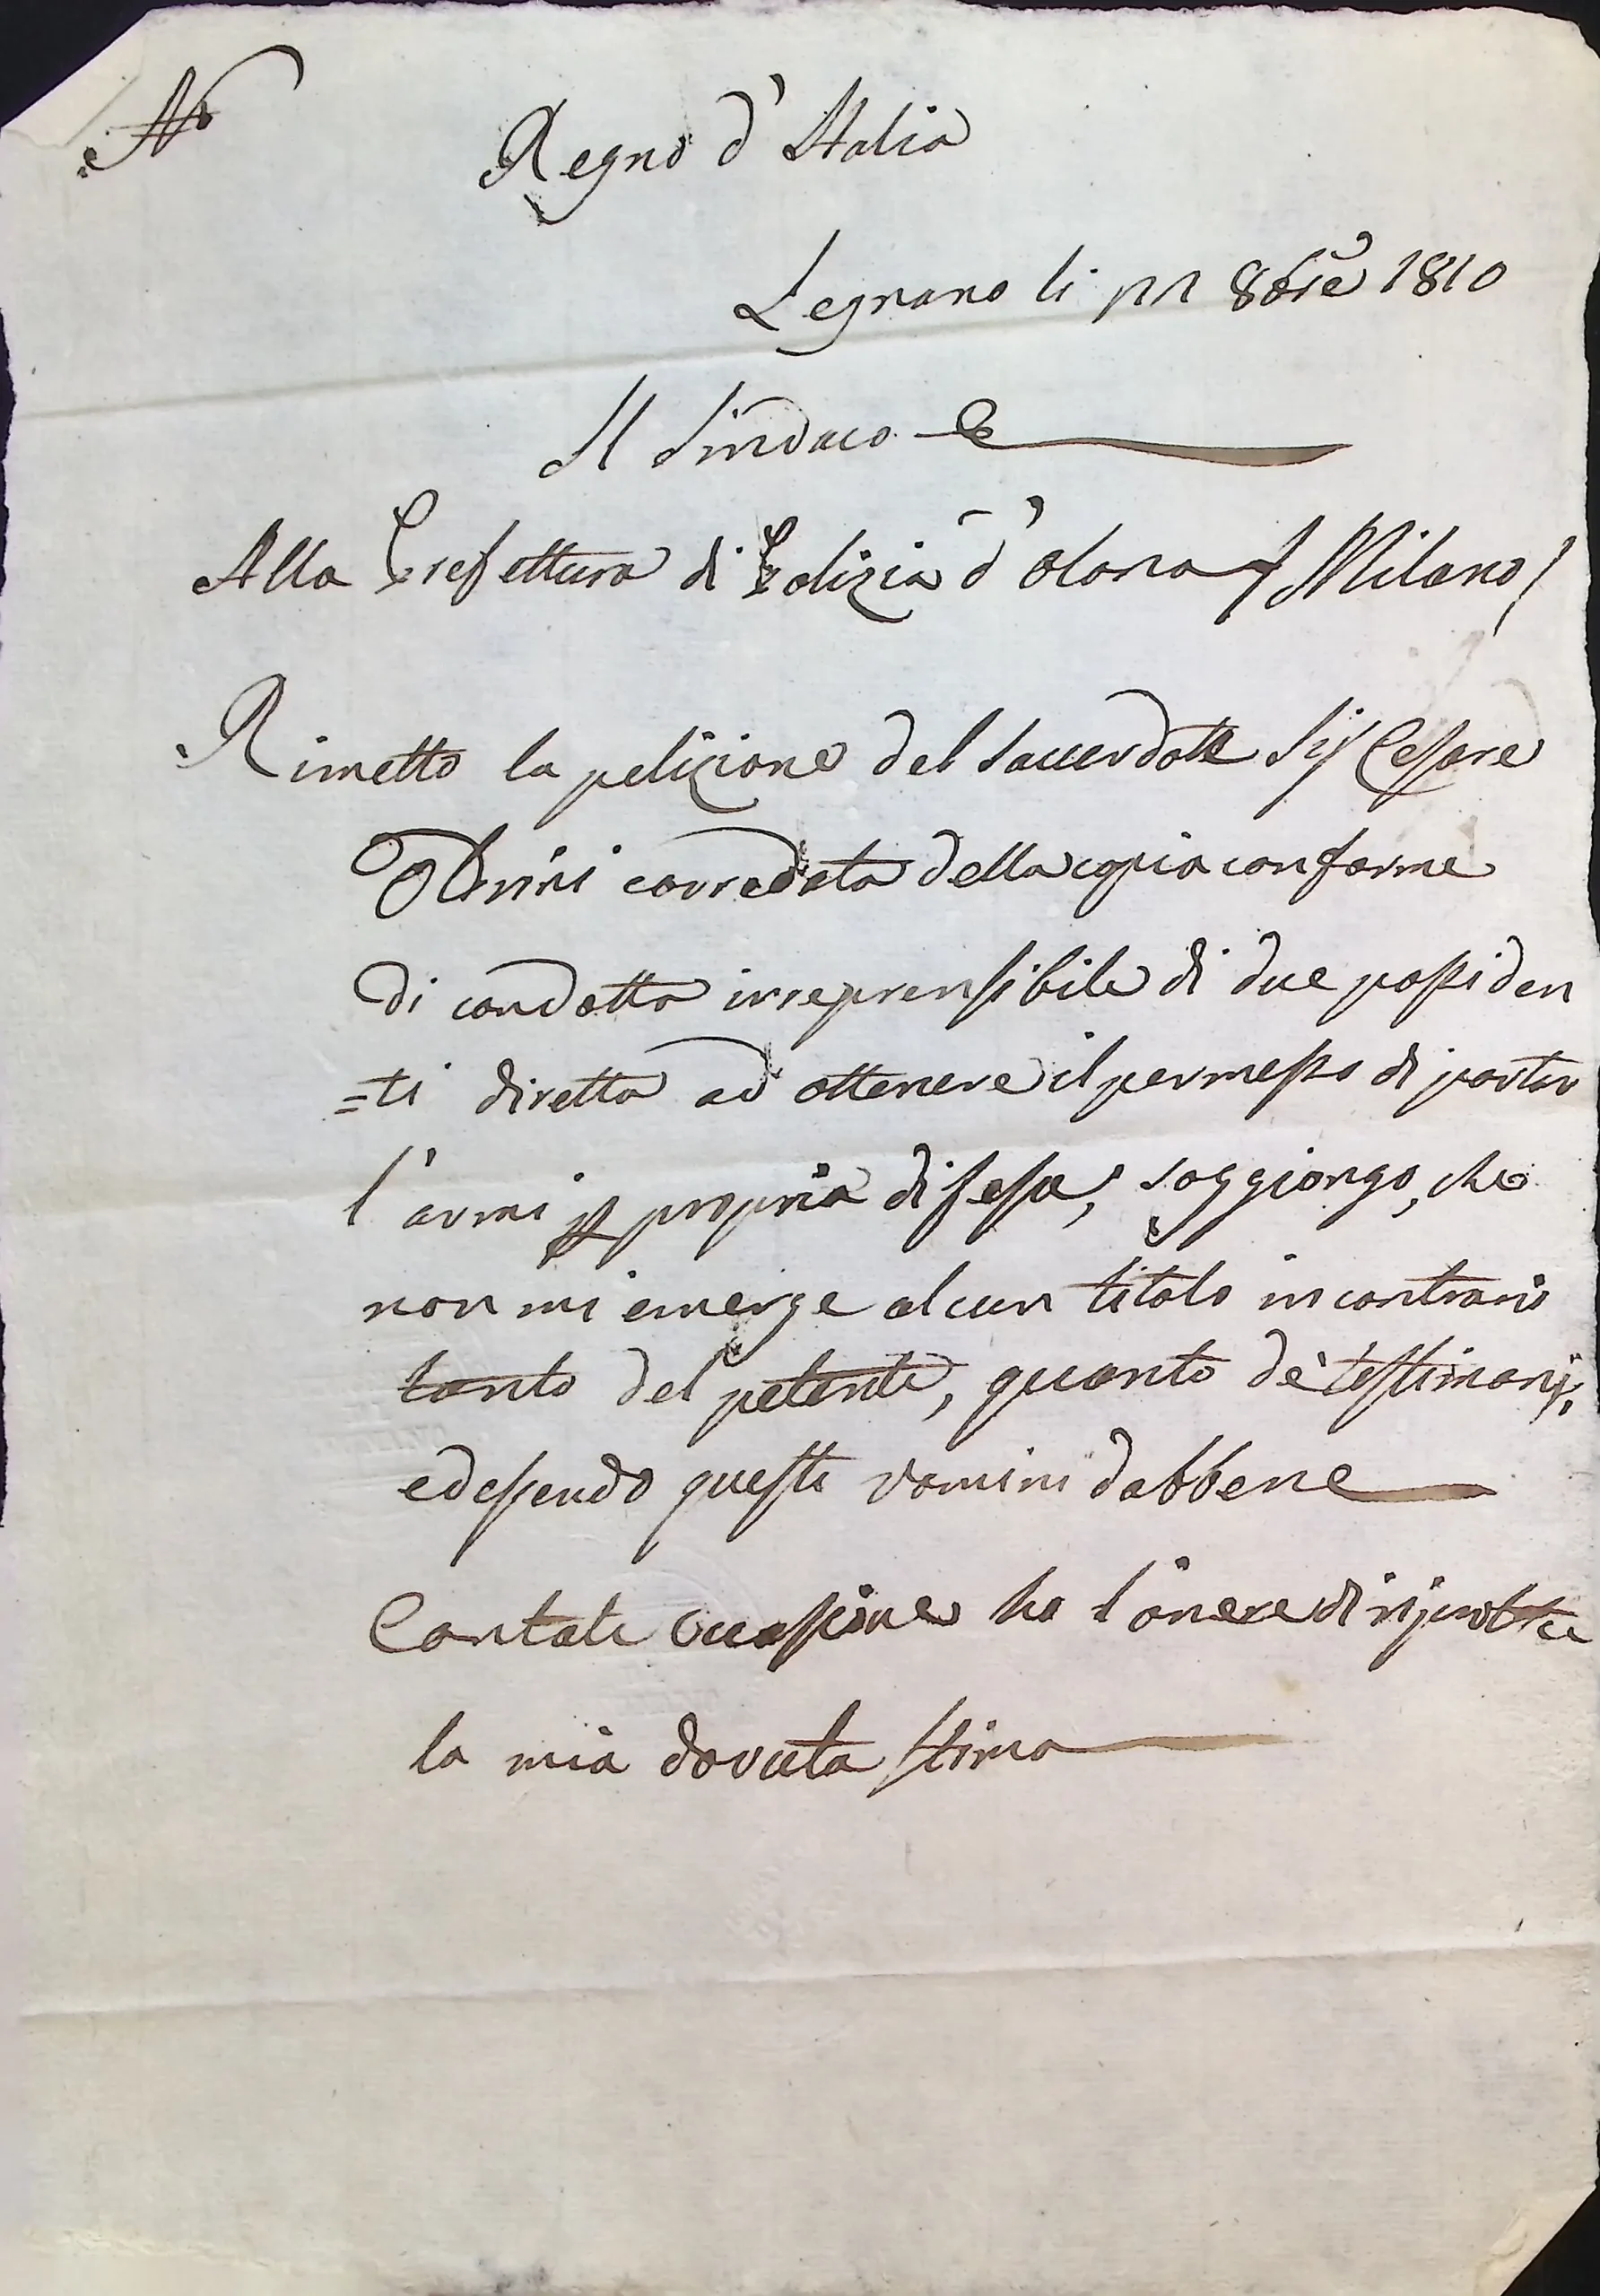 N.o
Regno d'Italia
Legnano li 11 8bre 1810
Il Sindaco
Alla Prefettura di Polizia d'Olona / Milano /
Rimetto la petizione del Saccerdote Sig. Cesare
corredata della copia conforme
di condotta irreprensibile di due possiden
=ti diretta ad ottenere il permesso di portar
l'armi p propria difesa, soggiongo, che
non mi emerge alcun titolo in contrario
tanto del petente, quanto de' testimonj,
ed essendo questi uomini dabbene
Con tale occasione ho l'onere di
la mia dovuta stima